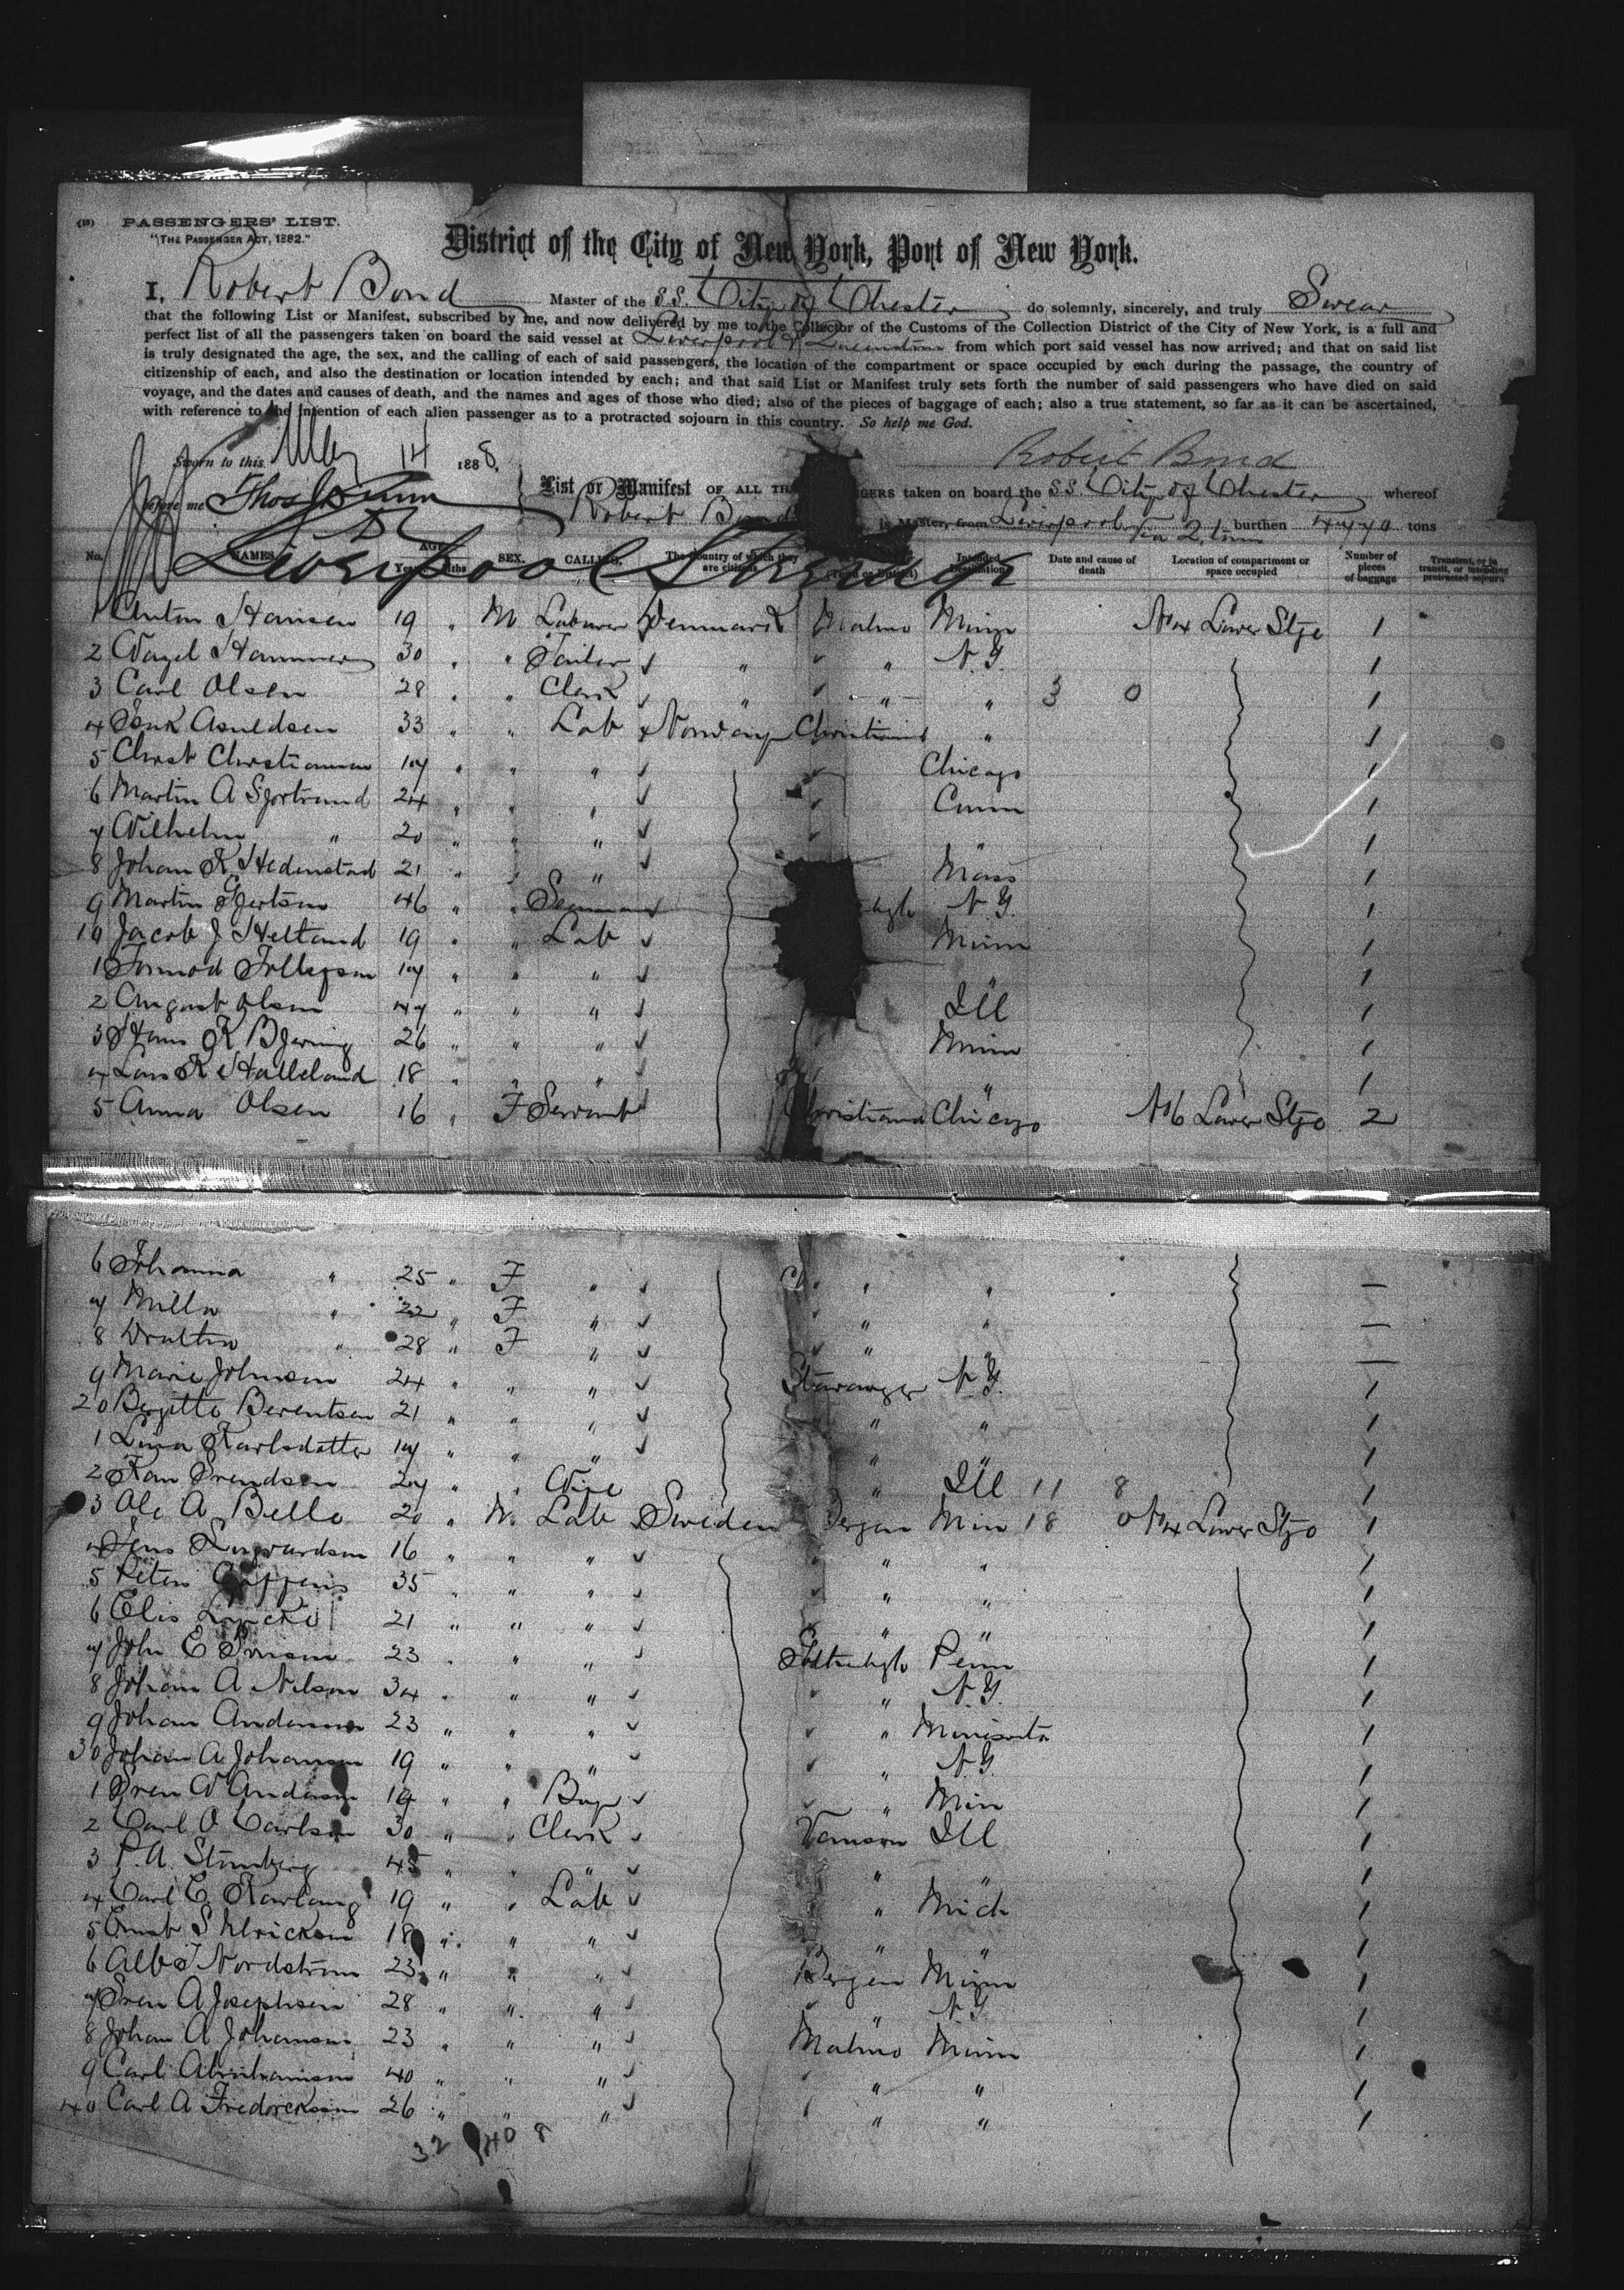 (18) PASSENGERS' LIST.
"THE PASSENGER ACT, 1882."
District of the City of New York, Port of New York.
I, Robert Bond Master of the SS. City of Chester do solemnly, sincerely, and truly Swear
that the following List or Manifest, subscribed by me, and now delivered by me to the Collector of the Customs of the Collection District of the City of New York, is a full and
perfect list of all the passengers taken on board the said vessel at Liverpool & Queenstown from which port said vessel has now arrived; and that on said list
is truly designated the age, the sex, and the calling of each of said passengers, the location of the compartment or space occupied by each during the passage, the country of
citizenship of each, and also the destination or location intended by each; and that said List or Manifest truly sets forth the number of said passengers who have died on said
voyage, and the dates and causes of death, and the names and ages of those who died; also of the pieces of baggage of each; also a true statement, so far as it can be ascertained,
with reference to the intention of each alien passenger as to a protracted sojourn in this country. So help me God.
Sworn to this May 14 1888, Robert Bond
before me Thos List or Manifest OF ALL TH GERS taken on board the SS. City of Chester whereof
Robert Bond is Master, from Liverpool burthen 4770 tons
No. NAMES. AGE SEX. CALLING. The Country of which they are citizens Intended Destination Date and cause of death Location of compartment or space occupied Number of pieces of baggage Transient, or in transit, or intending protracted sojourn
Liverpool Stranger
1 Anton Hansen 19 " M Laborer Denmark Malmo Minn No 4 Lower Stge 1
2 Hammer 30 " " Tailor " " N Y. 1
3 Carl Olsen 28 " " Clerk " " " 3 0 1
4 33 " " Lab Norway Christiania " 1
5 Christ Christiansen 17 " " " Chicago 1
6 Martin A 24 " " " 1
7 Wilhelm " 20 " " " " 1
8 Johan K Hedenstad 21 " " " Mass 1
9 Martin Gjertsen 46 " " Seaman N Y. 1
10 Jacob J Helland 19 " " Lab Minn 1
1 Tormod Tollefsen 17 " " " " 1
2 August Olsen 47 " " " Ill 1
3 Hans K 26 " " " Minn 1
4 Lars K Halleland 18 " " " " 1
5 Anna Olsen 16 " F Servant Christiania Chicago No 6 Lower Stge 2
6 Johanna " 25 " F " " " —
7 Milla " 22 " F " " " —
8 " 28 " F " " " —
9 Marie Johnsen 24 " " " Stavanger N Y. 1
20 Bergitte Berentsen 21 " " " " " 1
1 Lina Karlsdatter 17 " " " " " 1
2 27 " " Wife " Ill 11 8 1
3 Ole A Bello 20 " M. Lab Sweden Bergen Min 18 0 No 4 Lower Stge 1
4 Jens 16 " " " " " 1
5 Peter 35 " " " " " 1
6 Elis 21 " " " " " 1
7 John E 23 " " " Penn 1
8 Johan A Nilson 34 " " " " N Y. 1
9 Johan Anderson 23 " " " " Minisota 1
30 Johan A Johanson 19 " " " " N Y. 1
1 Sven W Anderson 14 " " Boy " Min 1
2 Carl O Carlson 30 " " Clerk Ill 1
3 P. A. 45 " " " " " 1
4 Carl E. 19 " " Lab " Mich 1
5 Ernst S Ulrickson 18 " " " " " 1
6 Alb J Nordstrom 23 " " " Bergen Minn 1
7 Sven A Josephsen 28 " " " " N Y. 1
8 Johan A Johanson 23 " " " Malmo Minn 1
9 Carl Abrahamson 40 " " " " " 1
40 Carl A Frederickson 26 " " " " " 1
32 40 8